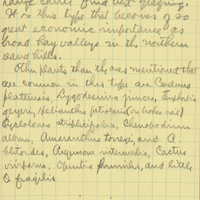 range cattle find best grazing.
It is this type that becomes of so
great economic importance as
broad hay valleys in the northern
sand hills.
Other plants than the ones mentioned that
are common in this type are Carduus
plattensis, Lygodesmia juncea, Euphorbia
geyeri, Helianthus petiolaris (on broken sod)
Cycloloma atriplicifolia, Chenopodium
album, Amaranthus torreyi, and A.
blitoides, Argemone intermedia, Cactus
viviparus, Opuntia humilis, and little
O fragilis